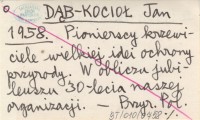 DĄB-KOCIOŁ Jan
1958. Pionierscy krzewi-
ciele wielkiej idei ochrony
przyrody. W obliczu jubi-
leuszu 30-lecia naszej
organizacji. — Przyr. Pol.